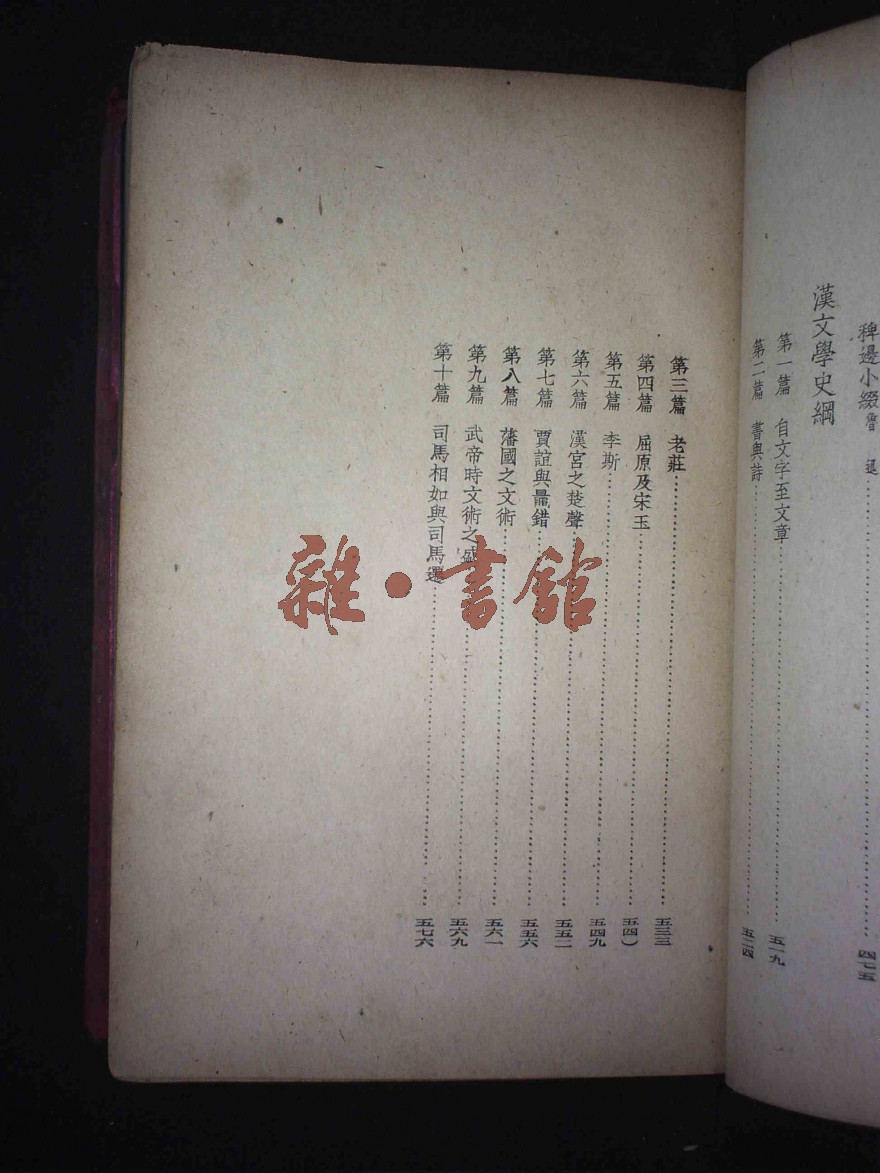 稗邊小綴魯迅……475
漢文學史綱
第一篇 自文字至文章……五一九
第二篇 書與詩……五二四
第三篇 老莊……五三三
第四篇 屈原及宋玉……五四〇
第五篇 李斯……五四九
第六篇 漢宮之楚聲……五五二
第七篇 賈誼與鼂錯……五五六
第八篇 藩國之文術……五六一
第九篇 武帝時文術之盛……五六九
第十篇 司馬相如與司馬遷……五七六
雜·書館